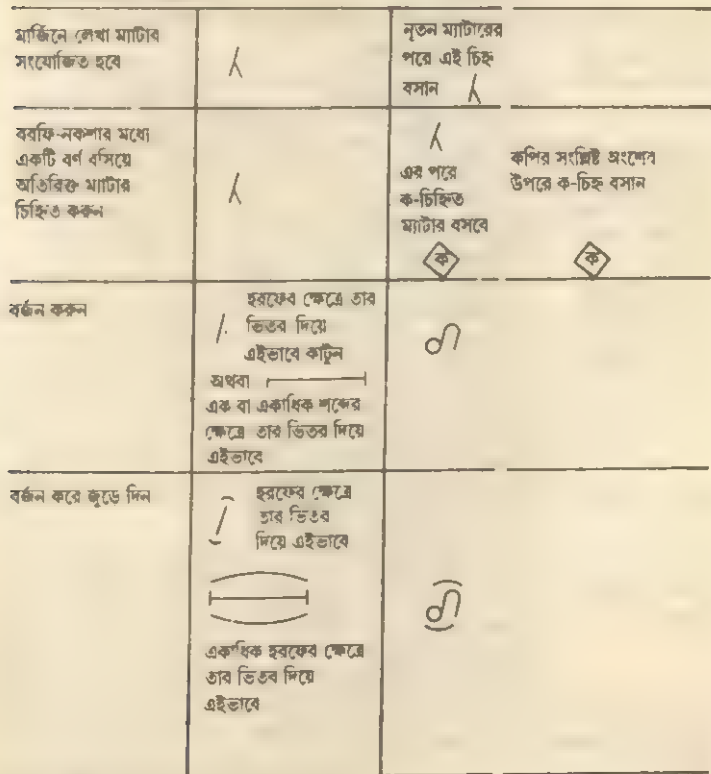 মার্জিনে লেখা ম্যাটার
সংযোজিত হবে
নূতন ম্যাটারের
পরে এই চিহ্ন
বসান
বরফি-নকশার মধ্যে
একটি বর্ণ বসিয়ে
অতিরিক্ত ম্যাটার
চিহ্নিত করুন
এর পরে
ক-চিহ্নিত
ম্যাটার বসবে
ক
কপির সংশ্লিষ্ট অংশের
উপরে ক-চিহ্ন বসান
ক
বর্জন করুন
হরফের ক্ষেত্রে তার
ভিতর দিয়ে
এইভাবে কাটুন
অথবা
এক বা একাধিক শব্দের
ক্ষেত্রে তার ভিতর দিয়ে
এইভাবে
বর্জন করে জুড়ে দিন
হরফের ক্ষেত্রে
তার ভিতর
দিয়ে এইভাবে
একাধিক হরফের ক্ষেত্রে
তার ভিতর দিয়ে
এইভাবে